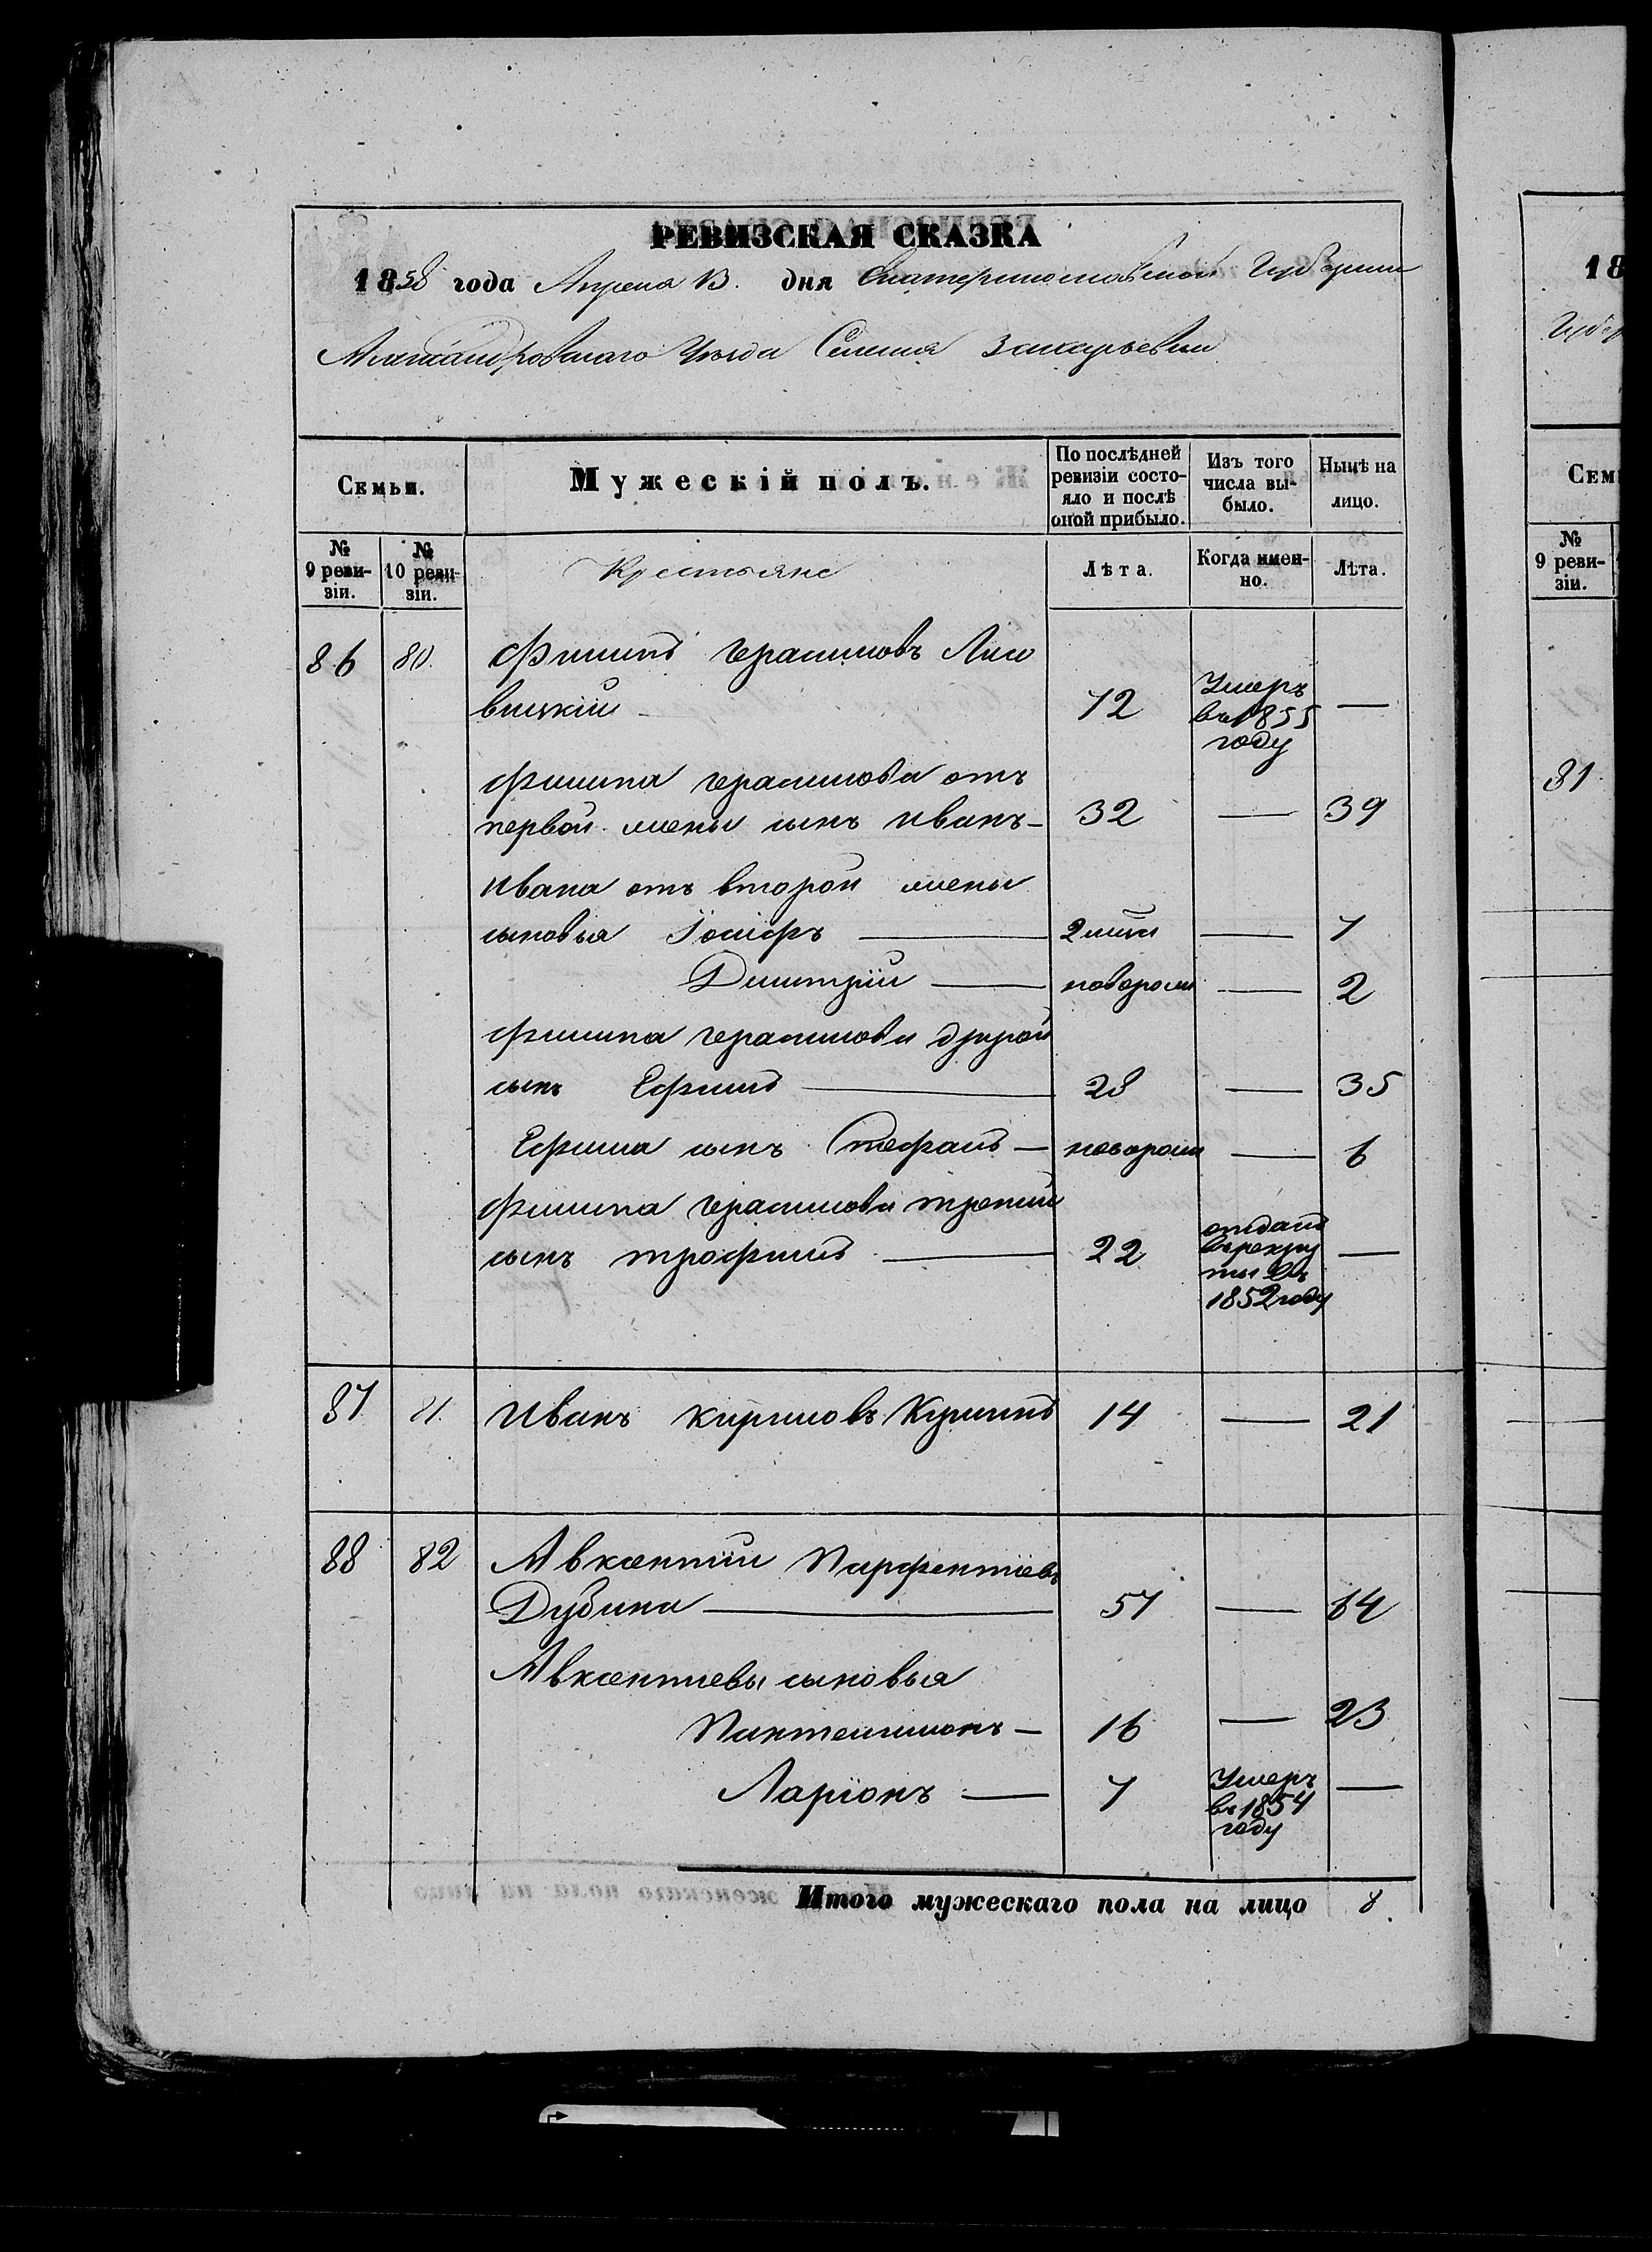 РЕВИЗСКАЯ СКАЗКА
1858 года Апреля 13. дня Екатеринославской Губернии
Александровскаго Уезда Селения Захарьевки
Семьи.
Мужескій полъ.
По послѣдней ревизіи состо-
яло и послѣ
оной прибыло.
Изъ того
числа вы-
было.
Нынѣ на
лицо.
№
9 реви-
зіи.
№
10 реви-
зіи.
Крестьяне
Лѣта.
Когда имен-
но.
Лѣта.
86 80. Филипъ Герасимовъ Лисо
вицкій 72 Умеръ
въ 1855
году —
Филипа Герасимова отъ
первой жены сынъ Иванъ 32 — 39
Ивана отъ второй жены
сыновья Іосифъ — — 7
Дмитрій — новорож — 2
Филипа Герасимова другой
сынъ Ефимъ — 28 — 35
Ефима сынъ Стефанъ — новорож — 6
Филипа Герасимова третий
сынъ Трофимъ — 22 отданъ
въ рекру
ты въ
1852 году —
87 81. Иванъ Кириловъ 14 — 21
88 82 Авксентий Парфентіевъ
Дубина — 57 — 64
Авксентиевы сыновья
Пантелимонъ — 16 — 23
Ларіонъ — 7 Умеръ
въ 1854
году —
Итого мужескаго пола на лицо 8.
18
Губер
Сем
№
9 реви-
зіи.
81